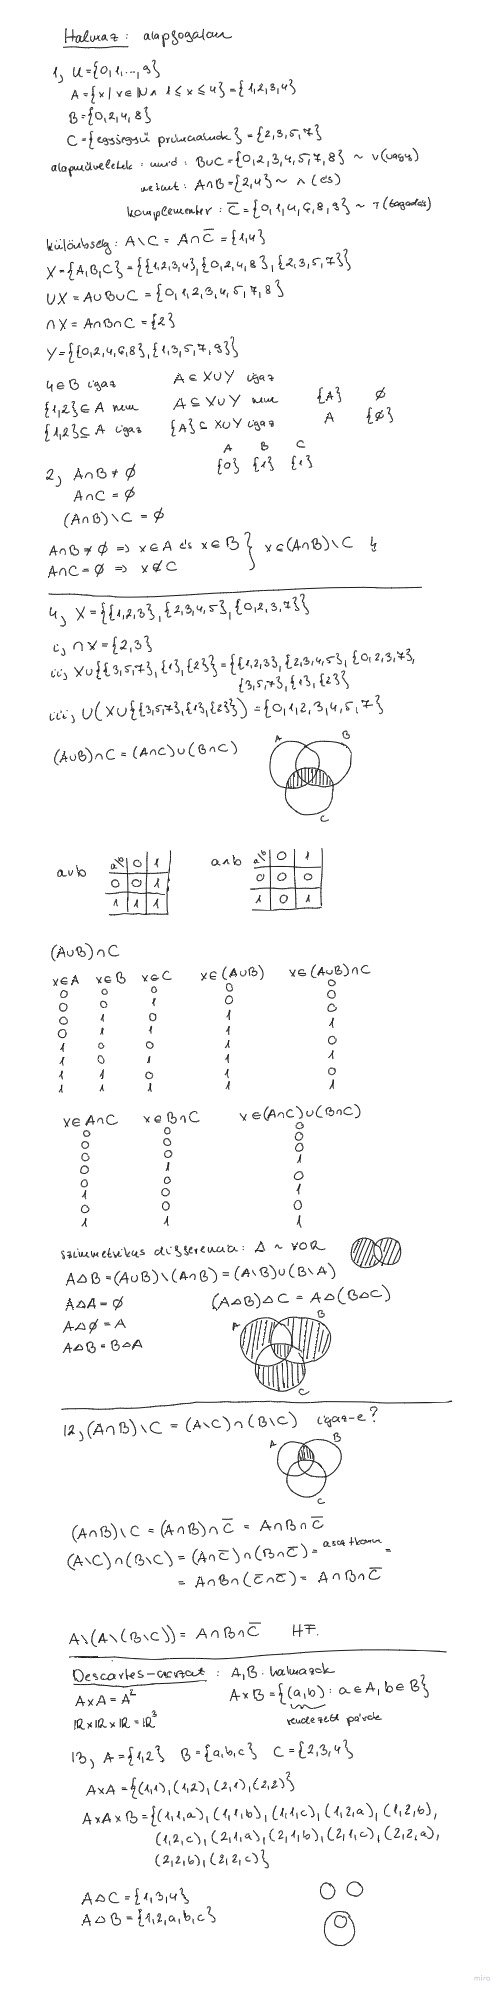 Halmaz: alapfogalom
1, U={0,1,...,9}
A={x | x∈ℕ ∧ 1≤x≤4}={1,2,3,4}
B={0,2,4,8}
C={egyjegyű prímszámok}={2,3,5,7}
alapműveletek: unió: B∪C={0,2,3,4,5,7,8} ~ ∨(vagy)
metszet: A∩B={2,4} ~ ∧(és)
komplementer: C̅={0,1,4,6,8,9} ~ ¬(tagadás)
különbség: A\C = A∩C̅ = {1,4}
X={A,B,C}={{1,2,3,4},{0,2,4,8},{2,3,5,7}}
∪X=A∪B∪C={0,1,2,3,4,5,7,8}
∩X=A∩B∩C={2}
Y={{0,2,4,6,8},{1,3,5,7,9}}
4∈B igaz A∈X∪Y igaz
{1,2}∈A nem A⊆X∪Y nem {A} ∅
{1,2}⊆A igaz {A}⊆X∪Y igaz A {∅}
A B C
2, A∩B≠∅ {0} {1} {1}
A∩C=∅
(A∩B)\C=∅
A∩B≠∅ => x∈A és x∈B } x∈(A∩B)\C ↯
A∩C=∅ => x∉C
4, X={{1,2,3},{2,3,4,5},{0,2,3,7}}
i, ∩X={2,3}
ii, X∪{{3,5,7},{1},{2}}={{1,2,3},{2,3,4,5},{0,2,3,7},
{3,5,7},{1},{2}}
iii, ∪(X∪{{3,5,7},{1},{2}})={0,1,2,3,4,5,7}
(A∪B)∩C=(A∩C)∪(B∩C) A B
C
a∨b a\b 0 1 a∧b a\b 0 1
0 0 1 0 0 0
1 1 1 1 0 1
(A∪B)∩C
x∈A x∈B x∈C x∈(A∪B) x∈(A∪B)∩C
0 0 0 0 0
0 0 1 0 0
0 1 0 1 0
0 1 1 1 1
1 0 0 1 0
1 0 1 1 1
1 1 0 1 0
1 1 1 1 1
x∈A∩C x∈B∩C x∈(A∩C)∪(B∩C)
0 0 0
0 0 0
0 0 0
0 1 1
0 0 0
1 0 1
0 0 0
1 1 1
szimmetrikus differencia: Δ ~ XOR
AΔB=(A∪B)\(A∩B)=(A\B)∪(B\A)
AΔA=∅ (AΔB)ΔC = AΔ(BΔC)
AΔ∅=A A B
AΔB=BΔA
C
12, (A∩B)\C = (A\C)∩(B\C) igaz-e?
A B
C
(A∩B)\C = (A∩B)∩C̅ = A∩B∩C̅
(A\C)∩(B\C) = (A∩C̅)∩(B∩C̅) = =
= A∩B∩(C̅∩C̅) = A∩B∩C̅
A\(A\(B\C)) = A∩B∩C̅ HF.
Descartes-szorzat: A,B halmazok
A×A=A² A×B={(a,b): a∈A, b∈B}
ℝ×ℝ×ℝ=ℝ³ rendezett párok
13, A={1,2} B={a,b,c} C={2,3,4}
A×A={(1,1),(1,2),(2,1),(2,2)}
A×A×B={(1,1,a),(1,1,b),(1,1,c),(1,2,a),(1,2,b),
(1,2,c),(2,1,a),(2,1,b),(2,1,c),(2,2,a),
(2,2,b),(2,2,c)}
AΔC={1,3,4}
AΔB={1,2,a,b,c}
miro